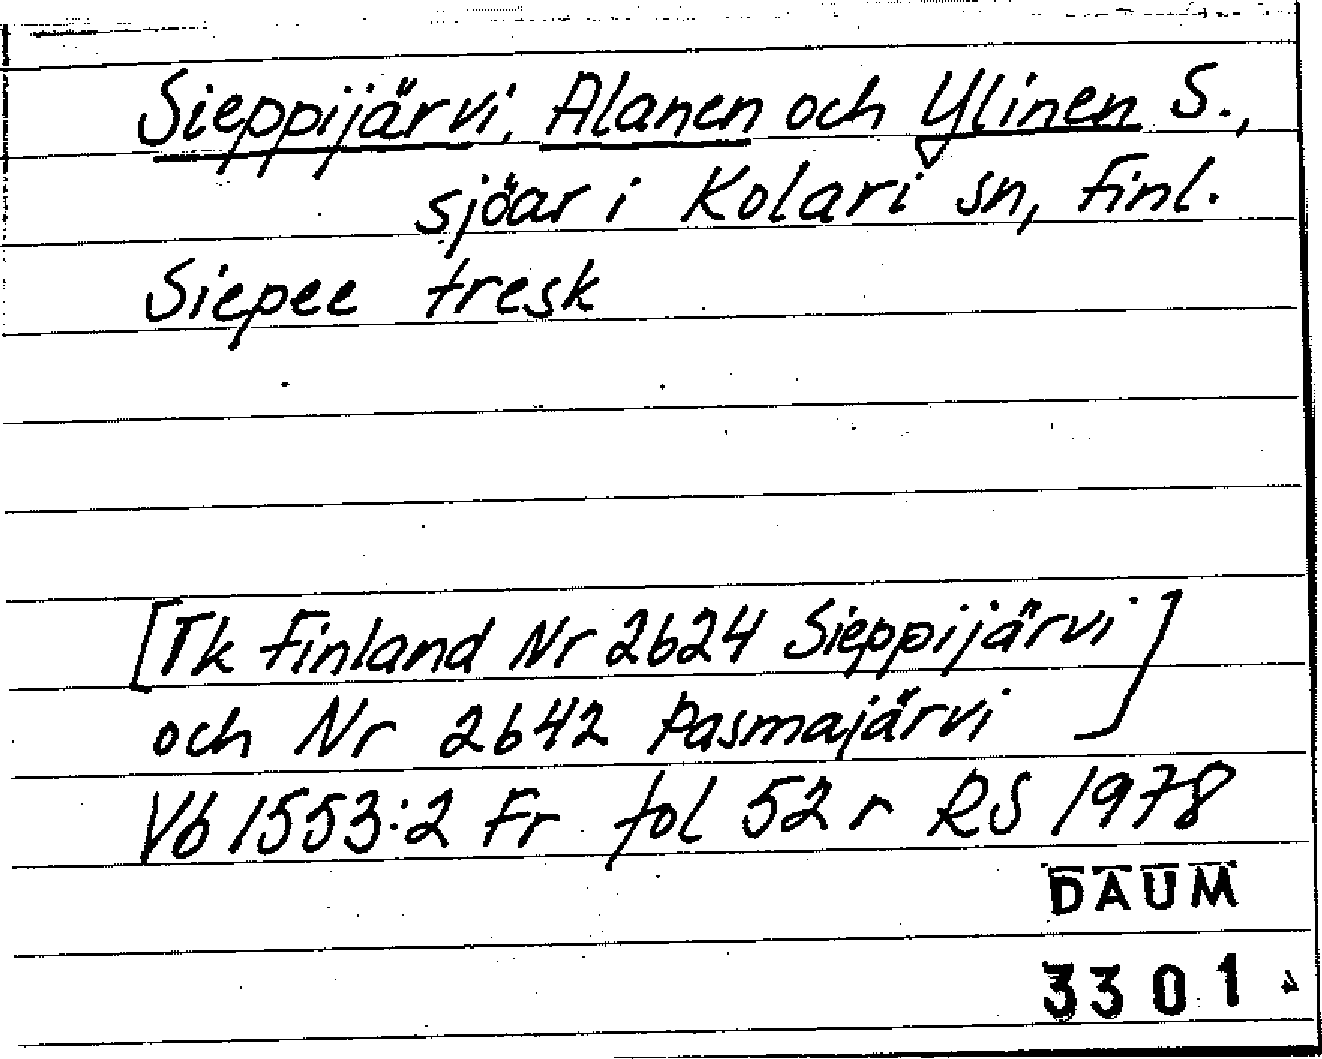 Sieppijärvi, Alanen och Ylinen S.,
sjöar i Kolari sn, Finl.
Siepee tresk
[Tk Finland Nr 2624 Sieppijärvi
och Nr 2642 Pasmajärvi]
Vb 1553:2 Fr fol 52 r RS 1978
DAUM
3301